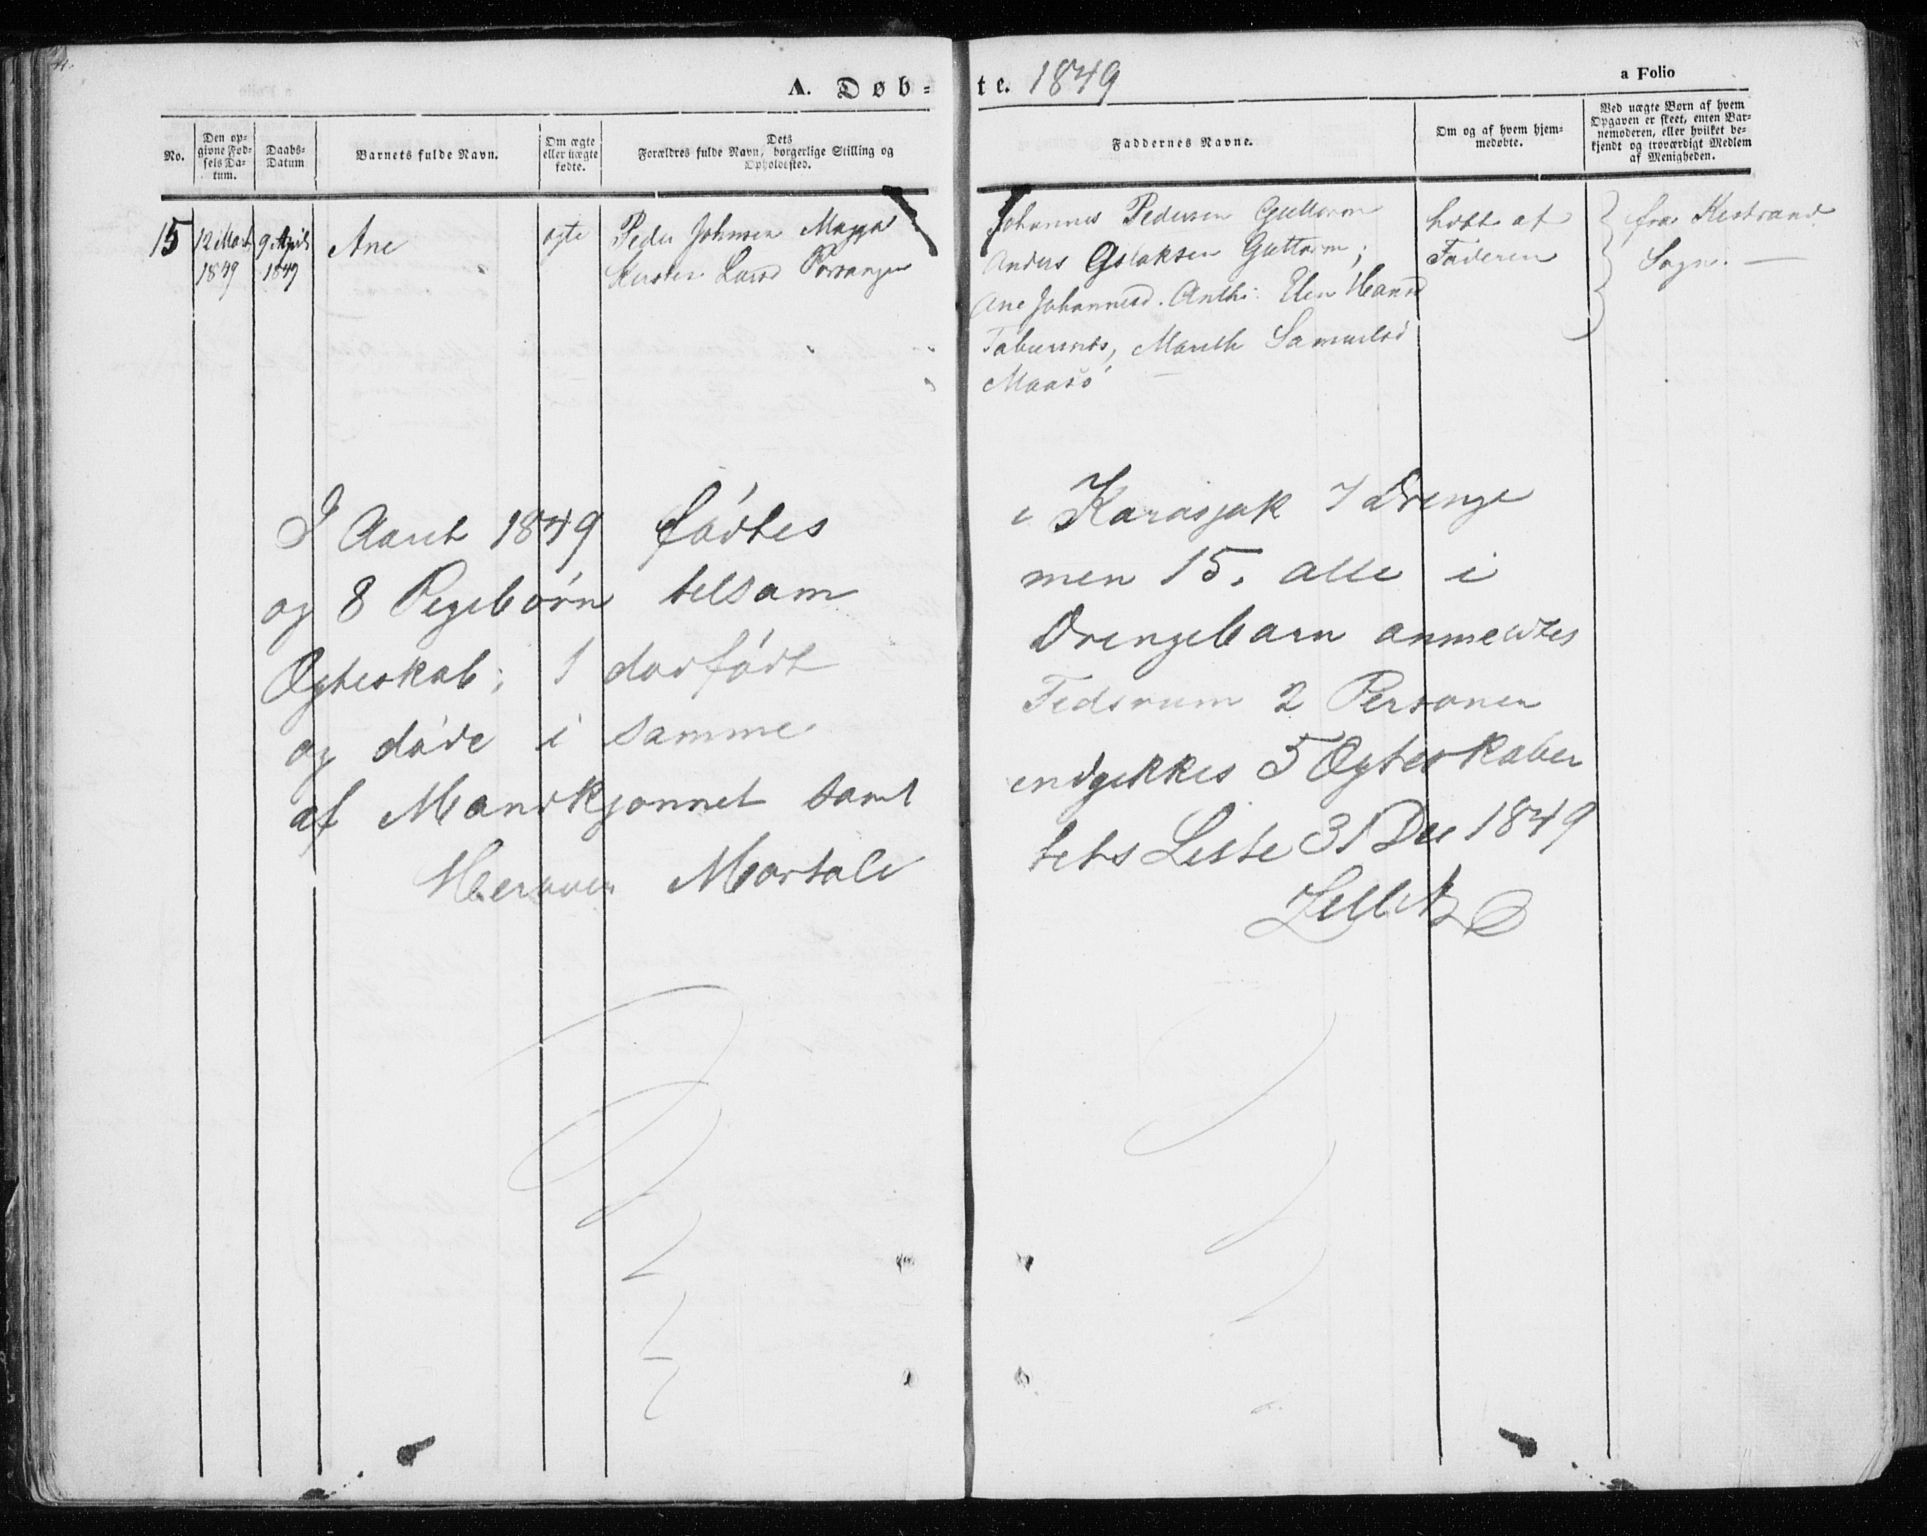 A. Døb-te. 1849
a Folio
No.
Den op-
givne Fød-
sels Da-
tum.
Daabs-
Datum
Barnets fulde Navn.
Om ægte
eller uægte
fødte.
Dets
Forældres fulde Navn, borgerlige Stilling og
Opholdssted.
Faddernes Navne.
Om og af hvem hjem-
medøbte.
Ved uægte Børn af hvem
Opgaven er skeet, enten Bar-
nemoderen, eller hvilket be-
kjendt og troværdigt Medlem
af Menigheden.
15
12 Mart
1849
9. April
1849
Ane
ægte
Peder Johnsen Magga
Kirsten Larsd Porsanger
Johannes Pedersen Guttorm
Anders Aslaksen Guttorm;
Ane Johannesd. Anthi. Elen Hansd
Marith Samuelsd
Maasö
hdbt af
Faderen
fra Kistrand
Sogn. —
I Aaret 1849 fødtes i Karasjok 7 Drenge
og 8 Pigebørn tilsam men 15. alle i
Ægteskab; 1 dødfødt Drengebarn anmeldtes
og døde i samme Tidsrum 2 Personer
af Mandkjønnet samt indgikkes 5 Ægteskaber
Herover Mortali tets Liste 31 Dec 1849
Zetlitz